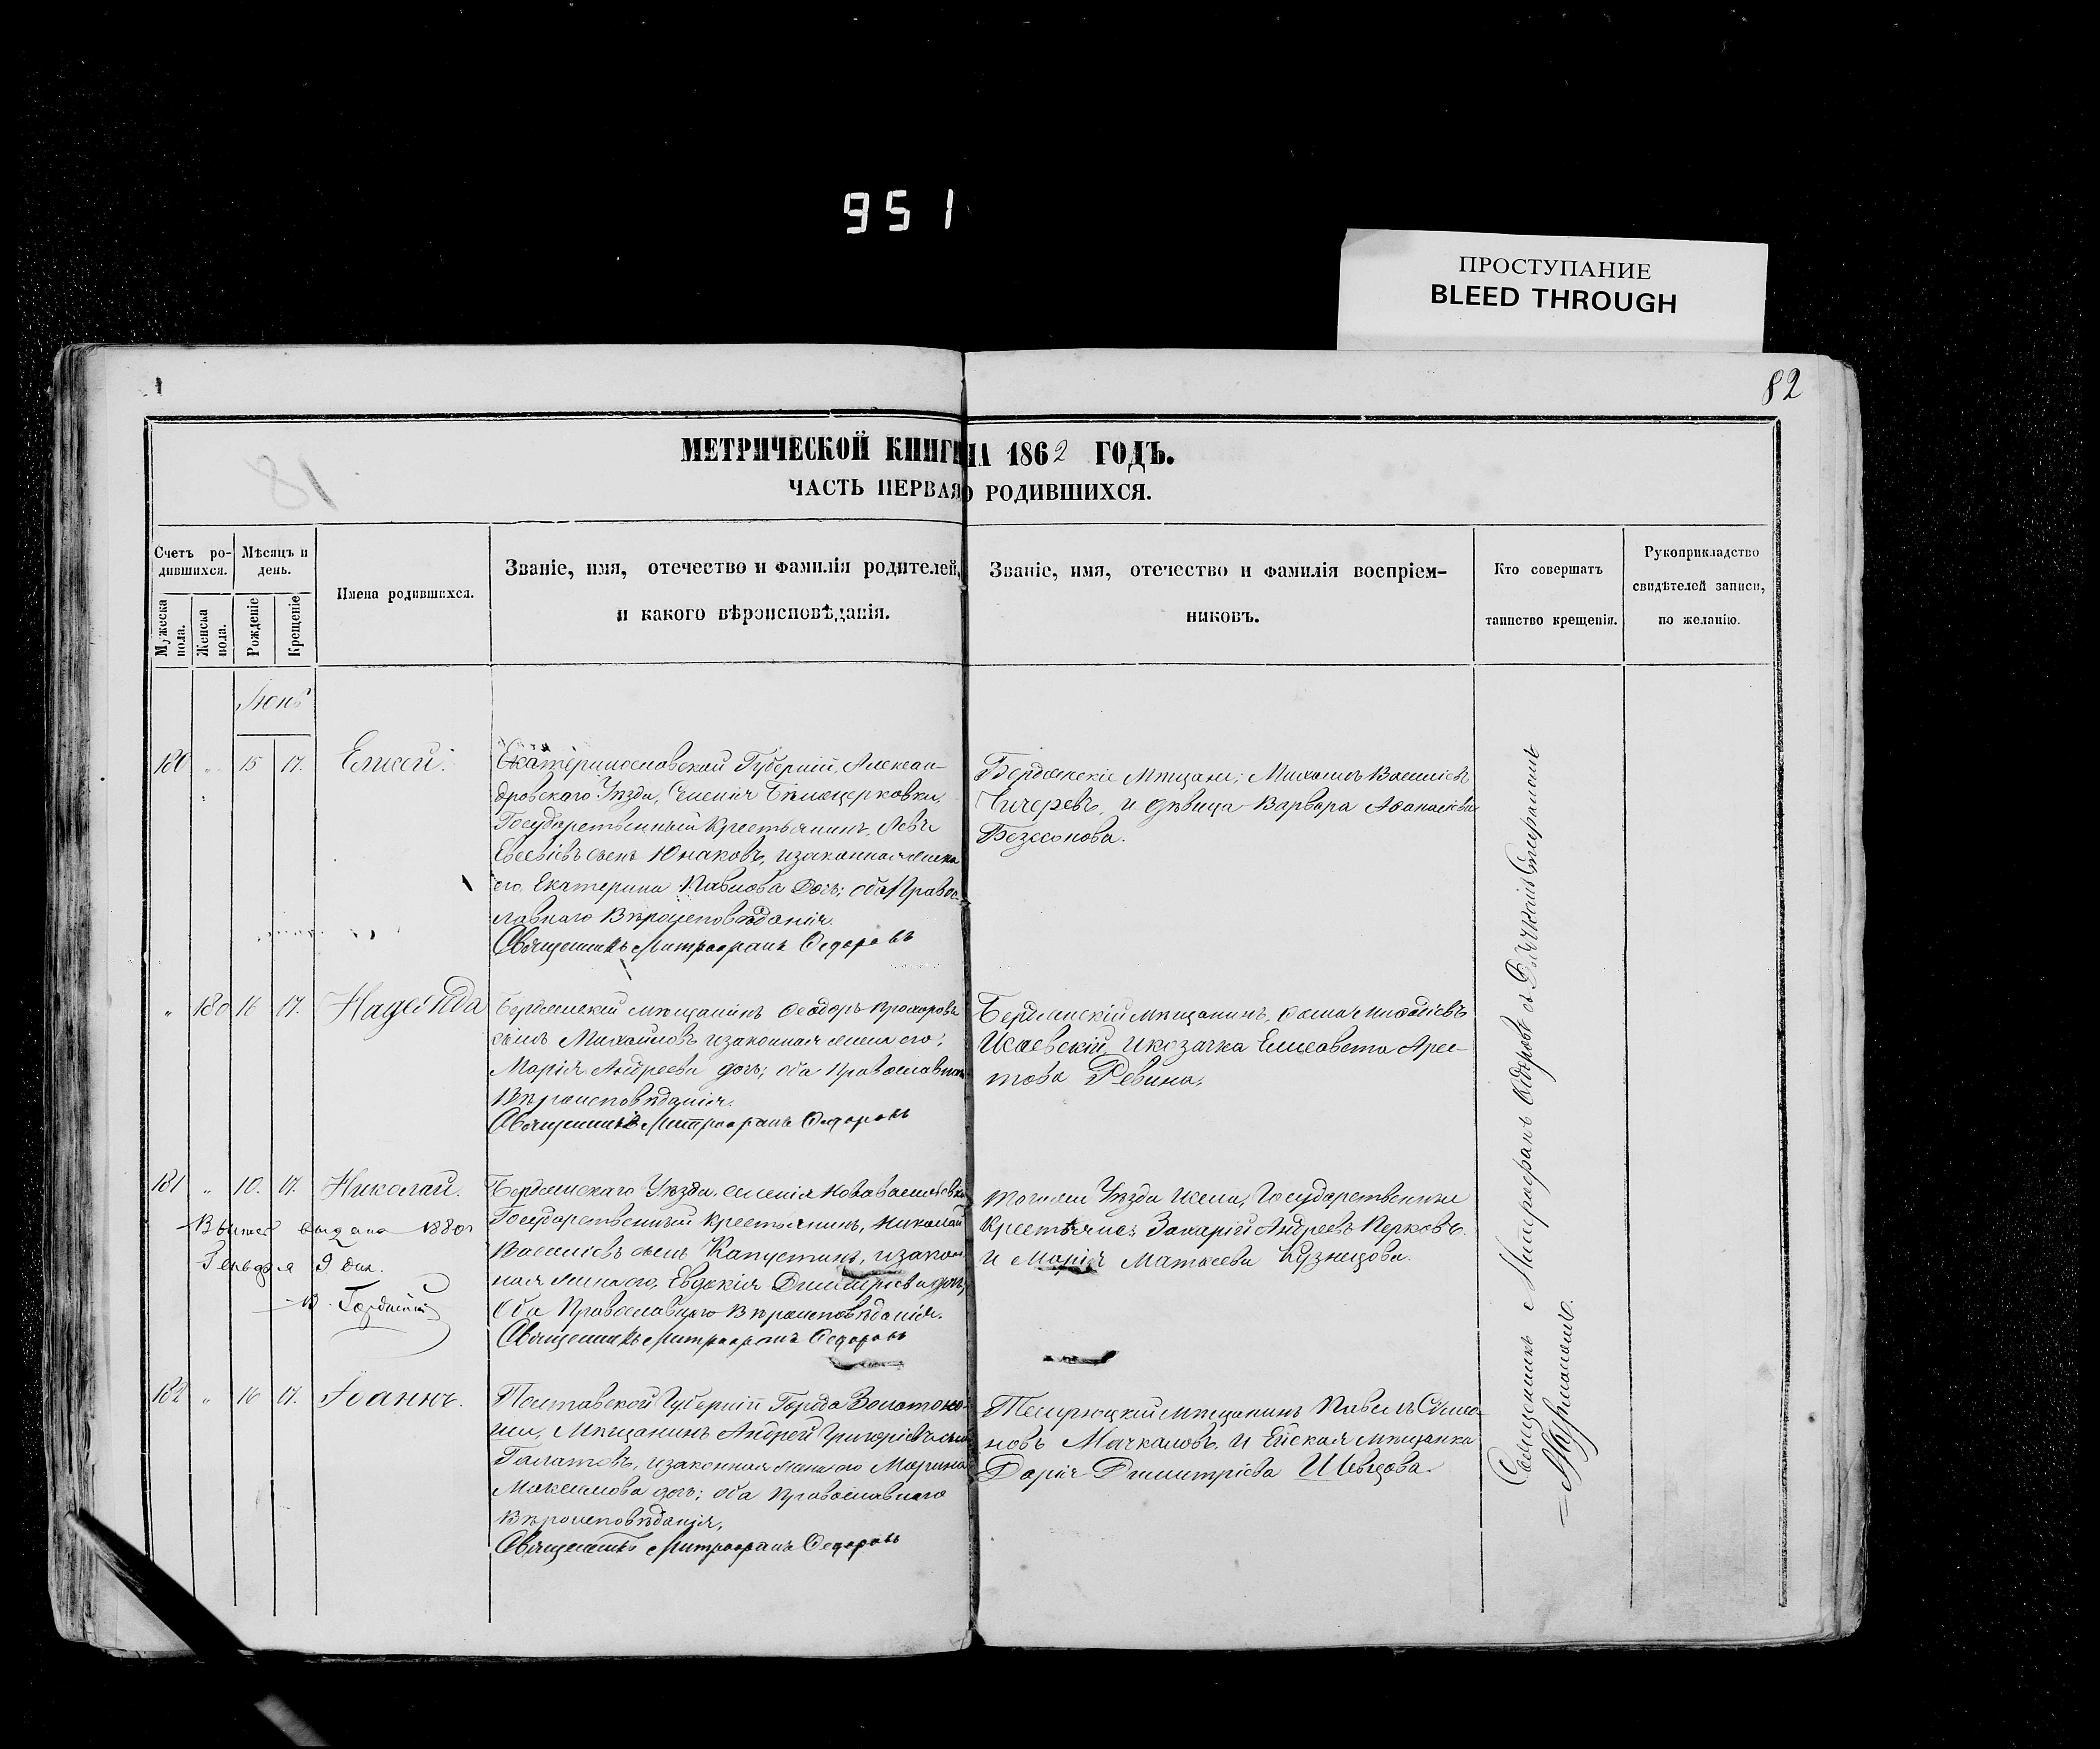 951
ПРОСТУПАНИЕ
BLEED THROUGH
82
81
МЕТРИЧЕСКОЙ КНИГИ НА 1862 ГОДЪ.
ЧАСТЬ ПЕРВАЯ О РОДИВШИХСЯ.
Счетъ ро-
дившихся.
Мужеска пола.
Женска пола.
Мѣсяцъ и
день.
Рожденіе
Крещеніе
Имена родившихся.
Званіе, имя, отечество и фамилія родителей,
и какого вѣроисповѣданія.
Званіе, имя, отечество и фамилія воспріем-
никовъ.
Кто совершатъ
таинство крещенія.
Рукоприкладство
свидѣтелей записи,
по желанію.
Іюнь
180 " 15 17. Елисей.
Екатеринославской Губерніи, Алексан-
дровскаго Уѣзда, Селенія Бѣлоцерковки,
Государственный Крестьянинъ, Левъ
Евсевіевъ сынъ Юнаковъ, и законная жена
его, Екатерина Павлова дочь; оба Правос-
лавнаго Вѣроисповѣданія.
Священникъ Митрофанъ Федоровъ
Бердянскіе Мѣщане; Михаилъ Василіевъ
Чичеревъ, и дѣвица Варвара Афанасіева
Безсонова.
" 180 16 17. Надежда
Бердянскій мѣщанинъ Феодоръ Прохоровъ
сынъ Михайловъ и законная жена его;
Марія Андреева дочь; оба Православнаго
Вѣроисповѣданія.
Священникъ Митрофанъ Федоровъ
Бердянскій мѣщанинъ,
Исаевскій, и козачка Елисавета Арес-
това Ревина.
181 " 10. 17. Николай.
Бердянскаго Уѣзда, селенія Нововасильевки
Государственный Крестьянинъ, Николай
Василіевъ сынъ Капустинъ, и закон-
ная жена его, Евдокія Димитріева дочь,
Оба Православнаго Вѣроисповѣданія.
Священникъ Митрофанъ Федоровъ
Тогоже Уѣзда и села, Государственные
Крестьяне: Захарій Андреевъ Перковъ.
и Марія Матѳеева Кузнецова.
выдана 1880
9 дня.
182 " 16 17. Іоаннъ.
Полтавской Губерніи Города Золотоно-
ши, Мѣщанинъ Андрей Григоріевъ сынъ
Галатовъ, и законная жена его Марина
Максимова дочь; оба Православнаго
Вѣроисповѣданія,
Священникъ Митрофанъ Федоровъ
Темрюцкій мѣщанинъ Павелъ Симео-
новъ Мачкаловъ, и Ейская мѣщанка
Дарія Димитріева Шевцова.
Священникъ Митрофанъ Федоровъ съ Дьячкомъ Стефаномъ